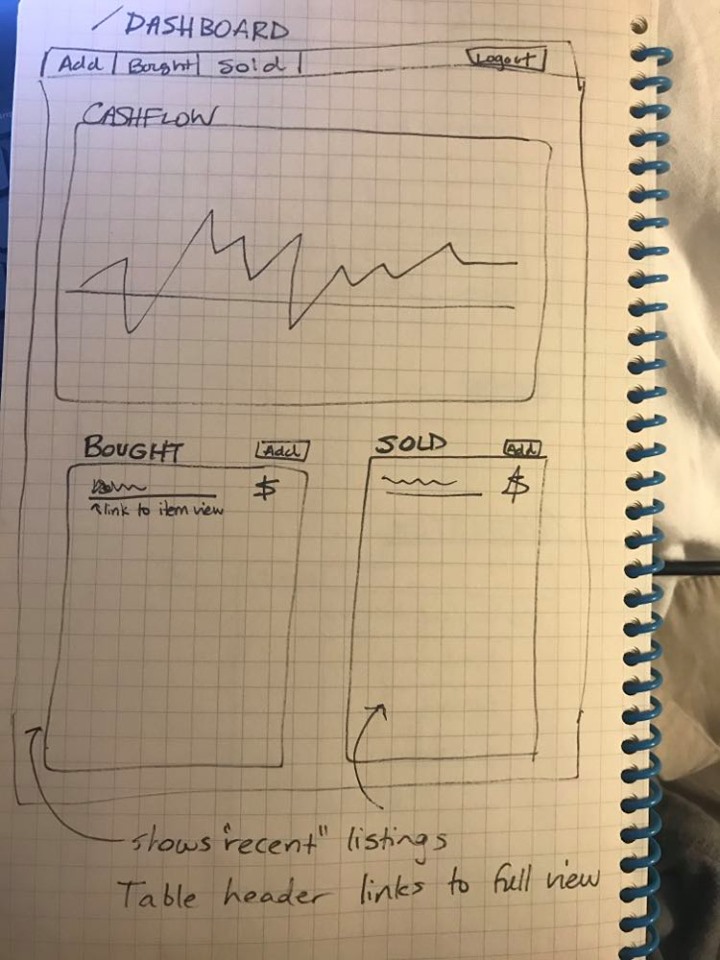 /DASHBOARD
Add | Bought | Sold |
Logout
CASHFLOW
BOUGHT
Add
SOLD
Add
$
$
↖link to item view
shows "recent" listings
Table header links to full view